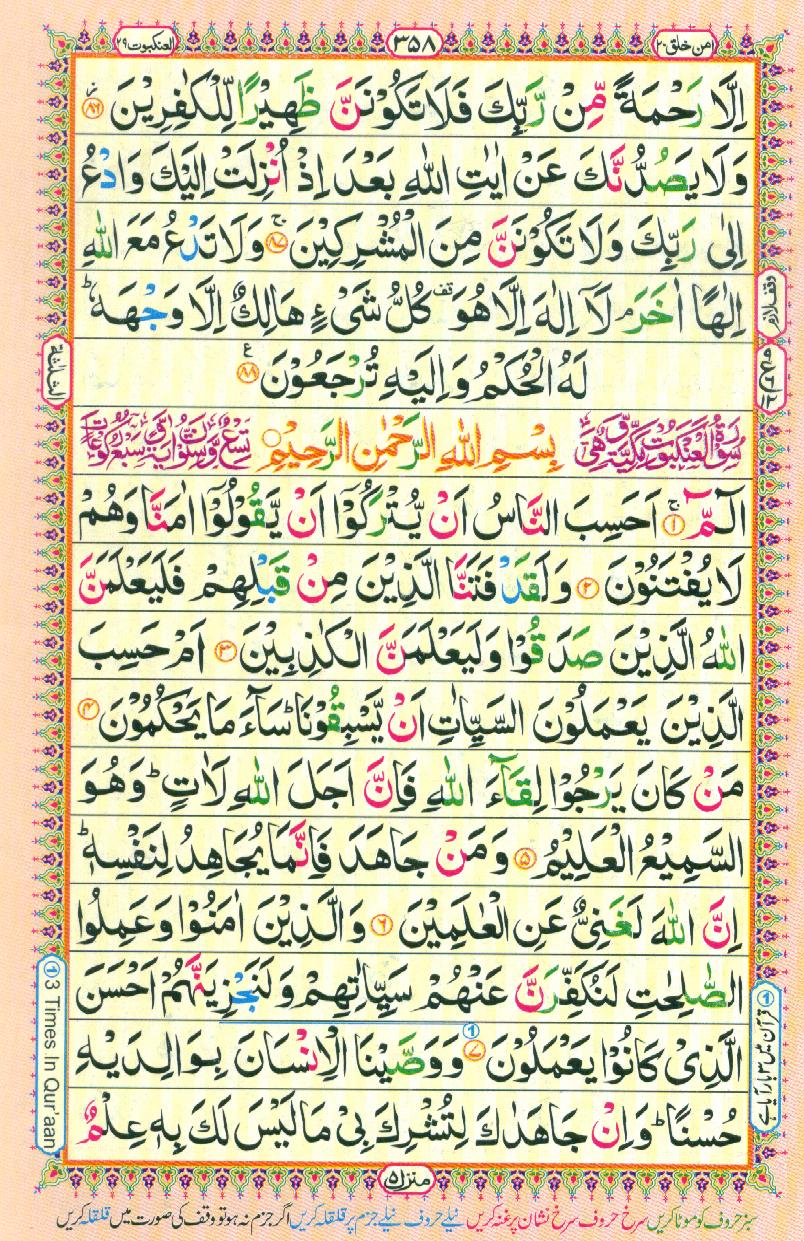 امن خلق ۲۰
۳۵۸
العنکبوت ۲۹
اِلَّا رَحْمَةً مِّنْ رَّبِّكَ فَلَا تَكُوْنَنَّ ظَهِيْرًا لِّلْكٰفِرِيْنَ ۸۶
وَلَا يَصُدُّنَّكَ عَنْ اٰيٰتِ اللّٰهِ بَعْدَ اِذْ اُنْزِلَتْ اِلَيْكَ وَادْعُ
اِلٰى رَبِّكَ وَلَا تَكُوْنَنَّ مِنَ الْمُشْرِكِيْنَ ۚ ۸۷ وَلَا تَدْعُ مَعَ اللّٰهِ
اِلٰهًا اٰخَرَ ۘ لَاۤ اِلٰهَ اِلَّا هُوَ قف كُلُّ شَيْءٍ هَالِكٌ اِلَّا وَجْهَهٗ ؕ
لَهُ الْحُكْمُ وَاِلَيْهِ تُرْجَعُوْنَ ۸۸ ع
وقف لازم
الثلثة
سُوْرَةُ الْعَنْكَبُوْتِ مَكِّيَّةٌ وَّهِيَ
بِسْمِ اللّٰهِ الرَّحْمٰنِ الرَّحِيْمِ
تِسْعٌ وَّسِتُّوْنَ اٰيَةً وَّسَبْعُ رُكُوْعَاتٍ
الٓمّٓ ۚ ۱ اَحَسِبَ النَّاسُ اَنْ يُّتْرَكُوْۤا اَنْ يَّقُوْلُوْۤا اٰمَنَّا وَهُمْ
لَا يُفْتَنُوْنَ ۲ وَلَقَدْ فَتَنَّا الَّذِيْنَ مِنْ قَبْلِهِمْ فَلَيَعْلَمَنَّ
اللّٰهُ الَّذِيْنَ صَدَقُوْا وَلَيَعْلَمَنَّ الْكٰذِبِيْنَ ۳ اَمْ حَسِبَ
الَّذِيْنَ يَعْمَلُوْنَ السَّيِّاٰتِ اَنْ يَّسْبِقُوْنَا ؕ سَآءَ مَا يَحْكُمُوْنَ ۴
مَنْ كَانَ يَرْجُوْا لِقَآءَ اللّٰهِ فَاِنَّ اَجَلَ اللّٰهِ لَاٰتٍ ؕ وَهُوَ
السَّمِيْعُ الْعَلِيْمُ ۵ وَمَنْ جَاهَدَ فَاِنَّمَا يُجَاهِدُ لِنَفْسِهٖ ؕ
اِنَّ اللّٰهَ لَغَنِيٌّ عَنِ الْعٰلَمِيْنَ ۶ وَالَّذِيْنَ اٰمَنُوْا وَعَمِلُوا
الصّٰلِحٰتِ لَنُكَفِّرَنَّ عَنْهُمْ سَيِّاٰتِهِمْ وَلَنَجْزِيَنَّهُمْ اَحْسَنَ
الَّذِيْ كَانُوْا يَعْمَلُوْنَ ۷ ① وَوَصَّيْنَا الْاِنْسَانَ بِوَالِدَيْهِ
حُسْنًا ؕ وَاِنْ جَاهَدٰكَ لِتُشْرِكَ بِيْ مَا لَيْسَ لَكَ بِهٖ عِلْمٌ
① قرآن میں ۳ بار آیا ہے
① 3 Times In Qur'aan
منزل ۵
سبز حروف کو موٹا کریں سرخ حروف سرخ نشان پر غنہ کریں نیلے حروف نیلے جزم پر قلقلہ کریں اگر جزم نہ ہو تو وقف کی صورت میں قلقلہ کریں